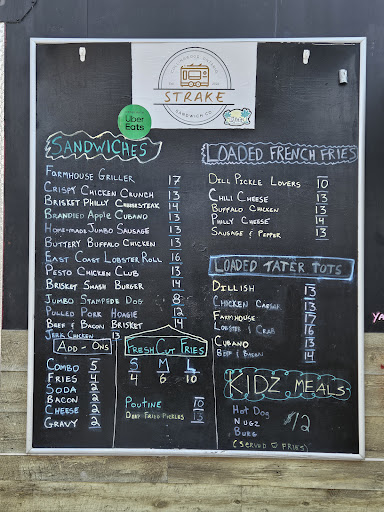 STRAKE
SANDWICH CO.
Uber
Eats
SANDWICHES
FARMHOUSE GRILLER 17
CRISPY CHICKEN CRUNCH 13
BRISKET PHILLY CHEESESTEAK 14
BRANDIED APPLE CUBANO 13
HOME-MADE JUMBO SAUSAGE 13
BUTTERY BUFFALO CHICKEN 13
EAST COAST LOBSTER ROLL 16
PESTO CHICKEN CLUB 13
BRISKET SMASH BURGER 14
JUMBO STAMPEDE DOG 8
PULLED PORK HOAGIE 12
BEEF & BACON BRISKET 14
JERK CHICKEN 13
ADD-ONS
COMBO 5
FRIES 4
SODA 2
BACON 2
CHEESE 2
GRAVY 2
FRESH CUT FRIES
S M L
4 6 10
POUTINE 10
DEEP FRIED PICKLES 13
LOADED FRENCH FRIES
DILL PICKLE LOVERS 10
CHILI CHEESE 13
BUFFALO CHICKEN 13
PHILLY CHEESE 14
SAUSAGE & PEPPER 13
LOADED TATER TOTS
DILLISH 13
CHICKEN CAESAR 13
FARMHOUSE 17
LOBSTER & CRAB 16
CUBANO 13
BEEF & BACON 14
KIDZ MEALS
HOT DOG
NUGZ $12
BURG
(SERVED FRIES)
YA